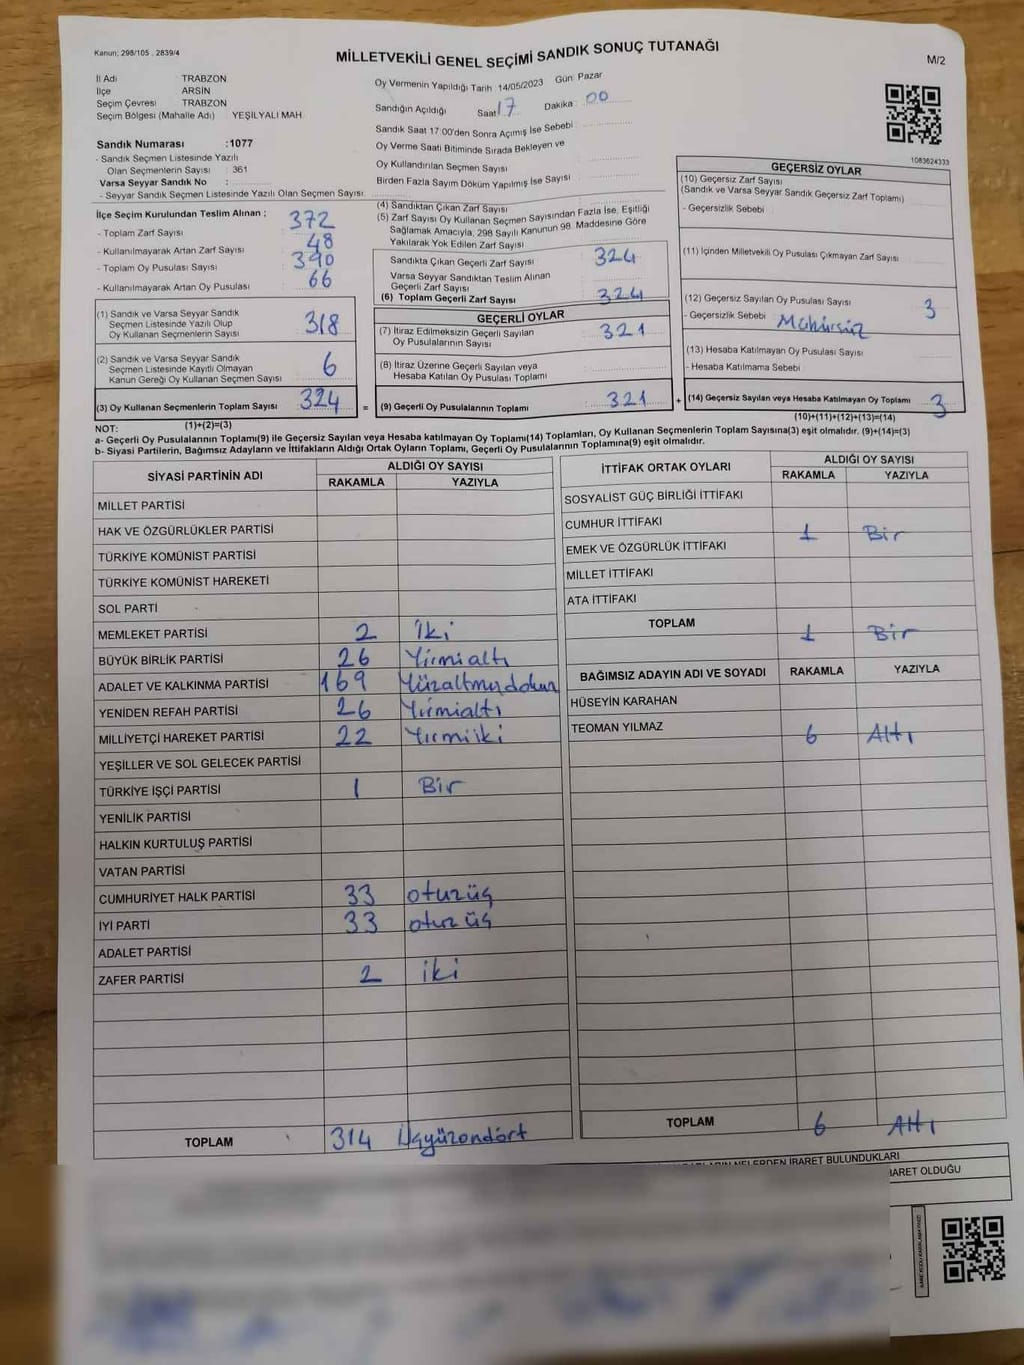 Kanun; 298/105 , 2839/4
MİLLETVEKİLİ GENEL SEÇİMİ SANDIK SONUÇ TUTANAĞI
M/2
İl Adı TRABZON
İlçe ARSİN
Seçim Çevresi TRABZON
Seçim Bölgesi (Mahalle Adı) : YEŞİLYALI MAH.
Sandık Numarası :1077
- Sandık Seçmen Listesinde Yazılı
Olan Seçmenlerin Sayısı : 361
Varsa Seyyar Sandık No :
- Seyyar Sandık Seçmen Listesinde Yazılı Olan Seçmen Sayısı:
Oy Vermenin Yapıldığı Tarih 14/05/2023 Gün Pazar
Sandığın Açıldığı Saat 17 Dakika : 00
Sandık Saat 17:00'den Sonra Açımış İse Sebebi :
Oy Verme Saati Bitiminde Sırada Bekleyen ve
Oy Kullandırılan Seçmen Sayısı :
Birden Fazla Sayım Döküm Yapılmış İse Sayısı :
1083624333
İlçe Seçim Kurulundan Teslim Alınan ;
- Toplam Zarf Sayısı : 372
- Kullanılmayarak Artan Zarf Sayısı : 48
- Toplam Oy Pusulası Sayısı : 390
- Kullanılmayarak Artan Oy Pusulası : 66
(1) Sandık ve Varsa Seyyar Sandık
Seçmen Listesinde Yazılı Olup
Oy Kullanan Seçmenlerin Sayısı : 318
(2) Sandık ve Varsa Seyyar Sandık
Seçmen Listesinde Kayıtlı Olmayan
Kanun Gereği Oy Kullanan Seçmen Sayısı : 6
(3) Oy Kullanan Seçmenlerin Toplam Sayısı : 324
(1)+(2)=(3)
(4) Sandıktan Çıkan Zarf Sayısı :
(5) Zarf Sayısı Oy Kullanan Seçmen Sayısından Fazla İse, Eşitliği
Sağlamak Amacıyla, 298 Sayılı Kanunun 98. Maddesine Göre
Yakılarak Yok Edilen Zarf Sayısı :
Sandıkta Çıkan Geçerli Zarf Sayısı : 324
Varsa Seyyar Sandıktan Teslim Alınan
Geçerli Zarf Sayısı :
(6) Toplam Geçerli Zarf Sayısı : 324
GEÇERLİ OYLAR
(7) İtiraz Edilmeksizin Geçerli Sayılan
Oy Pusulalarının Sayısı : 321
(8) İtiraz Üzerine Geçerli Sayılan veya
Hesaba Katılan Oy Pusulası Toplamı :
= (9) Geçerli Oy Pusulalarının Toplamı : 321
GEÇERSİZ OYLAR
(10) Geçersiz Zarf Sayısı
(Sandık ve Varsa Seyyar Sandık Geçersiz Zarf Toplamı) :
- Geçersizlik Sebebi
(11) İçinden Milletvekili Oy Pusulası Çıkmayan Zarf Sayısı :
(12) Geçersiz Sayılan Oy Pusulası Sayısı : 3
- Geçersizlik Sebebi Mühürsüz
(13) Hesaba Katılmayan Oy Pusulası Sayısı :
- Hesaba Katılmama Sebebi
+ (14) Geçersiz Sayılan veya Hesaba Katılmayan Oy Toplamı : 3
(10)+(11)+(12)+(13)=(14)
NOT:
a- Geçerli Oy Pusulalarının Toplamı(9) ile Geçersiz Sayılan veya Hesaba katılmayan Oy Toplamı(14) Toplamları, Oy Kullanan Seçmenlerin Toplam Sayısına(3) eşit olmalıdır. (9)+(14)=(3)
b- Siyasi Partilerin, Bağımsız Adayların ve İttifakların Aldığı Ortak Oyların Toplamı, Geçerli Oy Pusulalarının Toplamına(9) eşit olmalıdır.
SİYASİ PARTİNİN ADI ALDIĞI OY SAYISI
RAKAMLA YAZIYLA
MİLLET PARTİSİ
HAK VE ÖZGÜRLÜKLER PARTİSİ
TÜRKİYE KOMÜNİST PARTİSİ
TÜRKİYE KOMÜNİST HAREKETİ
SOL PARTİ
MEMLEKET PARTİSİ 2 İki
BÜYÜK BİRLİK PARTİSİ 26 Yirmialtı
ADALET VE KALKINMA PARTİSİ 169 Yüzaltmışdokuz
YENİDEN REFAH PARTİSİ 26 Yirmialtı
MİLLİYETÇİ HAREKET PARTİSİ 22 Yirmiiki
YEŞİLLER VE SOL GELECEK PARTİSİ
TÜRKİYE İŞÇİ PARTİSİ 1 Bir
YENİLİK PARTİSİ
HALKIN KURTULUŞ PARTİSİ
VATAN PARTİSİ
CUMHURİYET HALK PARTİSİ 33 otuzüç
İYİ PARTİ 33 otuzüç
ADALET PARTİSİ
ZAFER PARTİSİ 2 iki
TOPLAM 314 Üçyüzondört
İTTİFAK ORTAK OYLARI ALDIĞI OY SAYISI
RAKAMLA YAZIYLA
SOSYALİST GÜÇ BİRLİĞİ İTTİFAKI
CUMHUR İTTİFAKI 1 Bir
EMEK VE ÖZGÜRLÜK İTTİFAKI
MİLLET İTTİFAKI
ATA İTTİFAKI
TOPLAM 1 Bir
BAĞIMSIZ ADAYIN ADI VE SOYADI RAKAMLA YAZIYLA
HÜSEYİN KARAHAN
TEOMAN YILMAZ 6 Altı
TOPLAM 6 Altı
NELERDEN İBARET BULUNDUKLARI
İBARET OLDUĞU